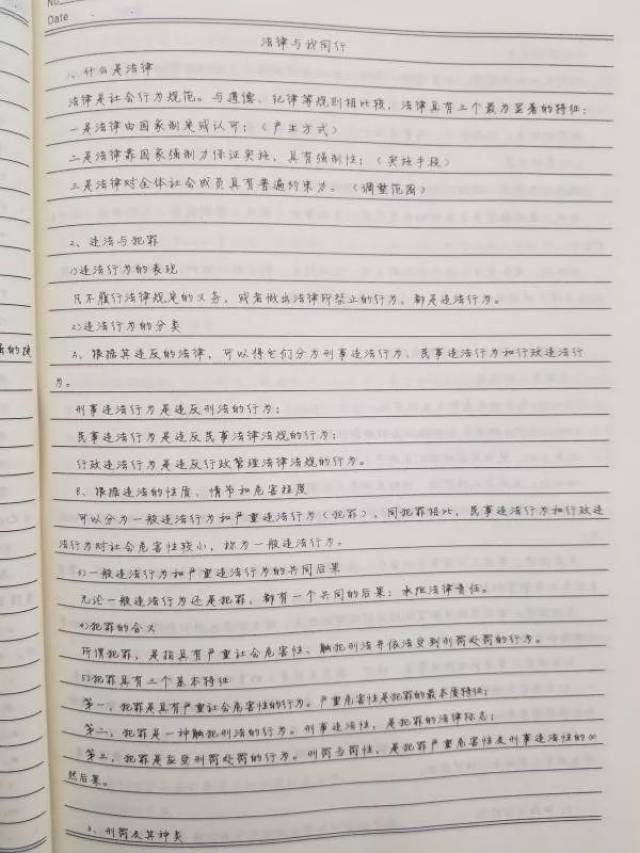 No
Date
法律与我同行
1、什么是法律
法律是社会行为规范。与道德、纪律等规则相比较,法律具有三个最为显著的特征:
一是法律由国家制定或认可;(产生方式)
二是法律靠国家强制力保证实施,具有强制性;(实施手段)
三是法律对全体社会成员具有普遍约束力。(调整范围)
2、违法与犯罪
1)违法行为的表现
凡不履行法律规定的义务,或者做出法律所禁止的行为,都是违法行为。
2)违法行为的分类
A、根据其违反的法律,可以将它们分为刑事违法行为、民事违法行为和行政违法行
为。
刑事违法行为是违反刑法的行为;
民事违法行为是违反民事法律法规的行为;
行政违法行为是违反行政管理法律法规的行为。
B、根据违法的性质、情节和危害程度
可以分为一般违法行为和严重违法行为(犯罪)、同犯罪相比,民事违法行为和行政违
法行为对社会危害性较小,称为一般违法行为。
3)一般违法行为和严重违法行为的共同后果
无论一般违法行为还是犯罪,都有一个共同的后果:承担法律责任。
4)犯罪的含义
所谓犯罪,是指具有严重社会危害性、触犯刑法并依法受到刑罚处罚的行为。
5)犯罪具有三个基本特征
第一,犯罪是具有严重社会危害性的行为。严重危害性是犯罪的最本质特征;
第二,犯罪是一种触犯刑法的行为。刑事违法性,是犯罪的法律标志;
第三,犯罪是应受刑罚处罚的行为。刑罚当罚性,是犯罪严重危害性及刑事违法性的必
然后果。
3、刑罚及其种类